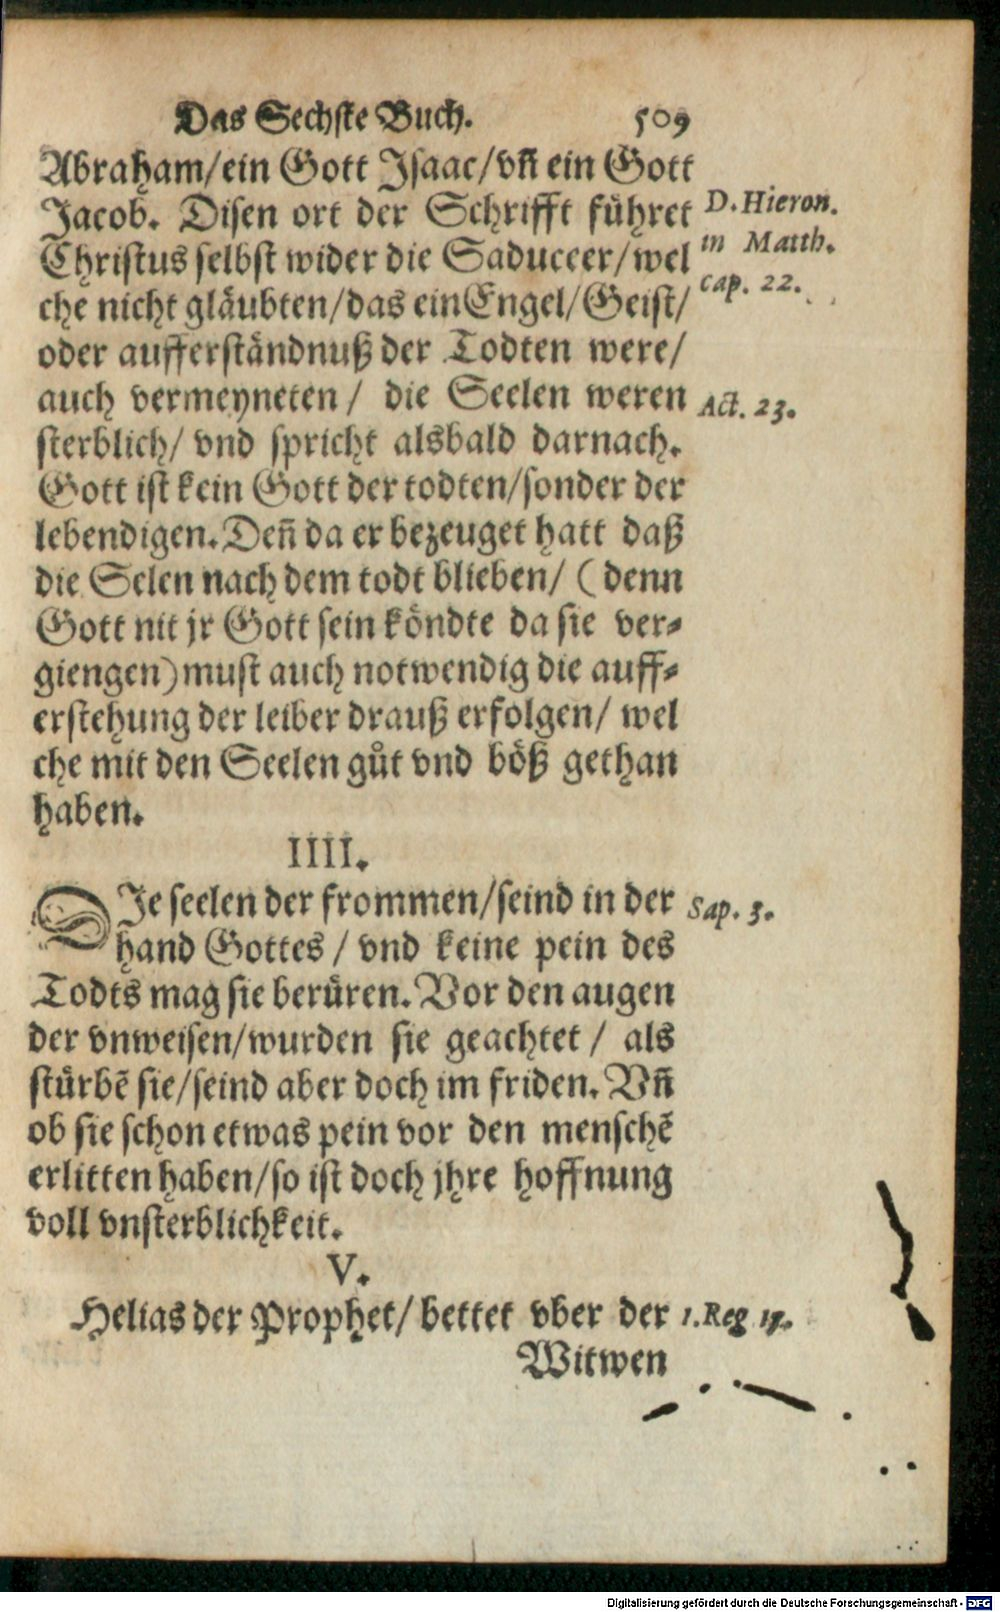 Das Sechste Buch. 509
Abraham/ein Gott Isaac/vñ ein Gott
Jacob. Disen ort der Schrifft führet
D. Hieron.
Christus selbst wider die Saduceer/wel
in Matth.
che nicht gläubten/das ein Engel/Geist/
cap. 22.
oder aufferständnuß der Todten were/
auch vermeyneten/ die Seelen weren
Act. 23.
sterblich/ vnd spricht alsbald darnach.
Gott ist kein Gott der todten/sonder der
lebendigen. Deñ da er bezeuget hatt daß
die Selen nach dem todt blieben/ (denn
Gott nit jr Gott sein köndte da sie ver-
giengen) must auch notwendig die auff-
erstehung der leiber drauß erfolgen/ wel
che mit den Seelen gůt vnd böß gethan
haben.
IIII.
DIe seelen der frommen/seind in der
Sap. 3.
hand Gottes/ vnd keine pein des
Todts mag sie berüren. Vor den augen
der vnweisen/wurden sie geachtet/ als
stürbē sie/seind aber doch im friden. Vñ
ob sie schon etwas pein vor den menschē
erlitten haben/so ist doch jhre hoffnung
voll vnsterblichkeit.
V.
Helias der Prophet/ bettet vber der
1. Reg 17.
Witwen
Digitalisierung gefördert durch die Deutsche Forschungsgemeinschaft - DFG